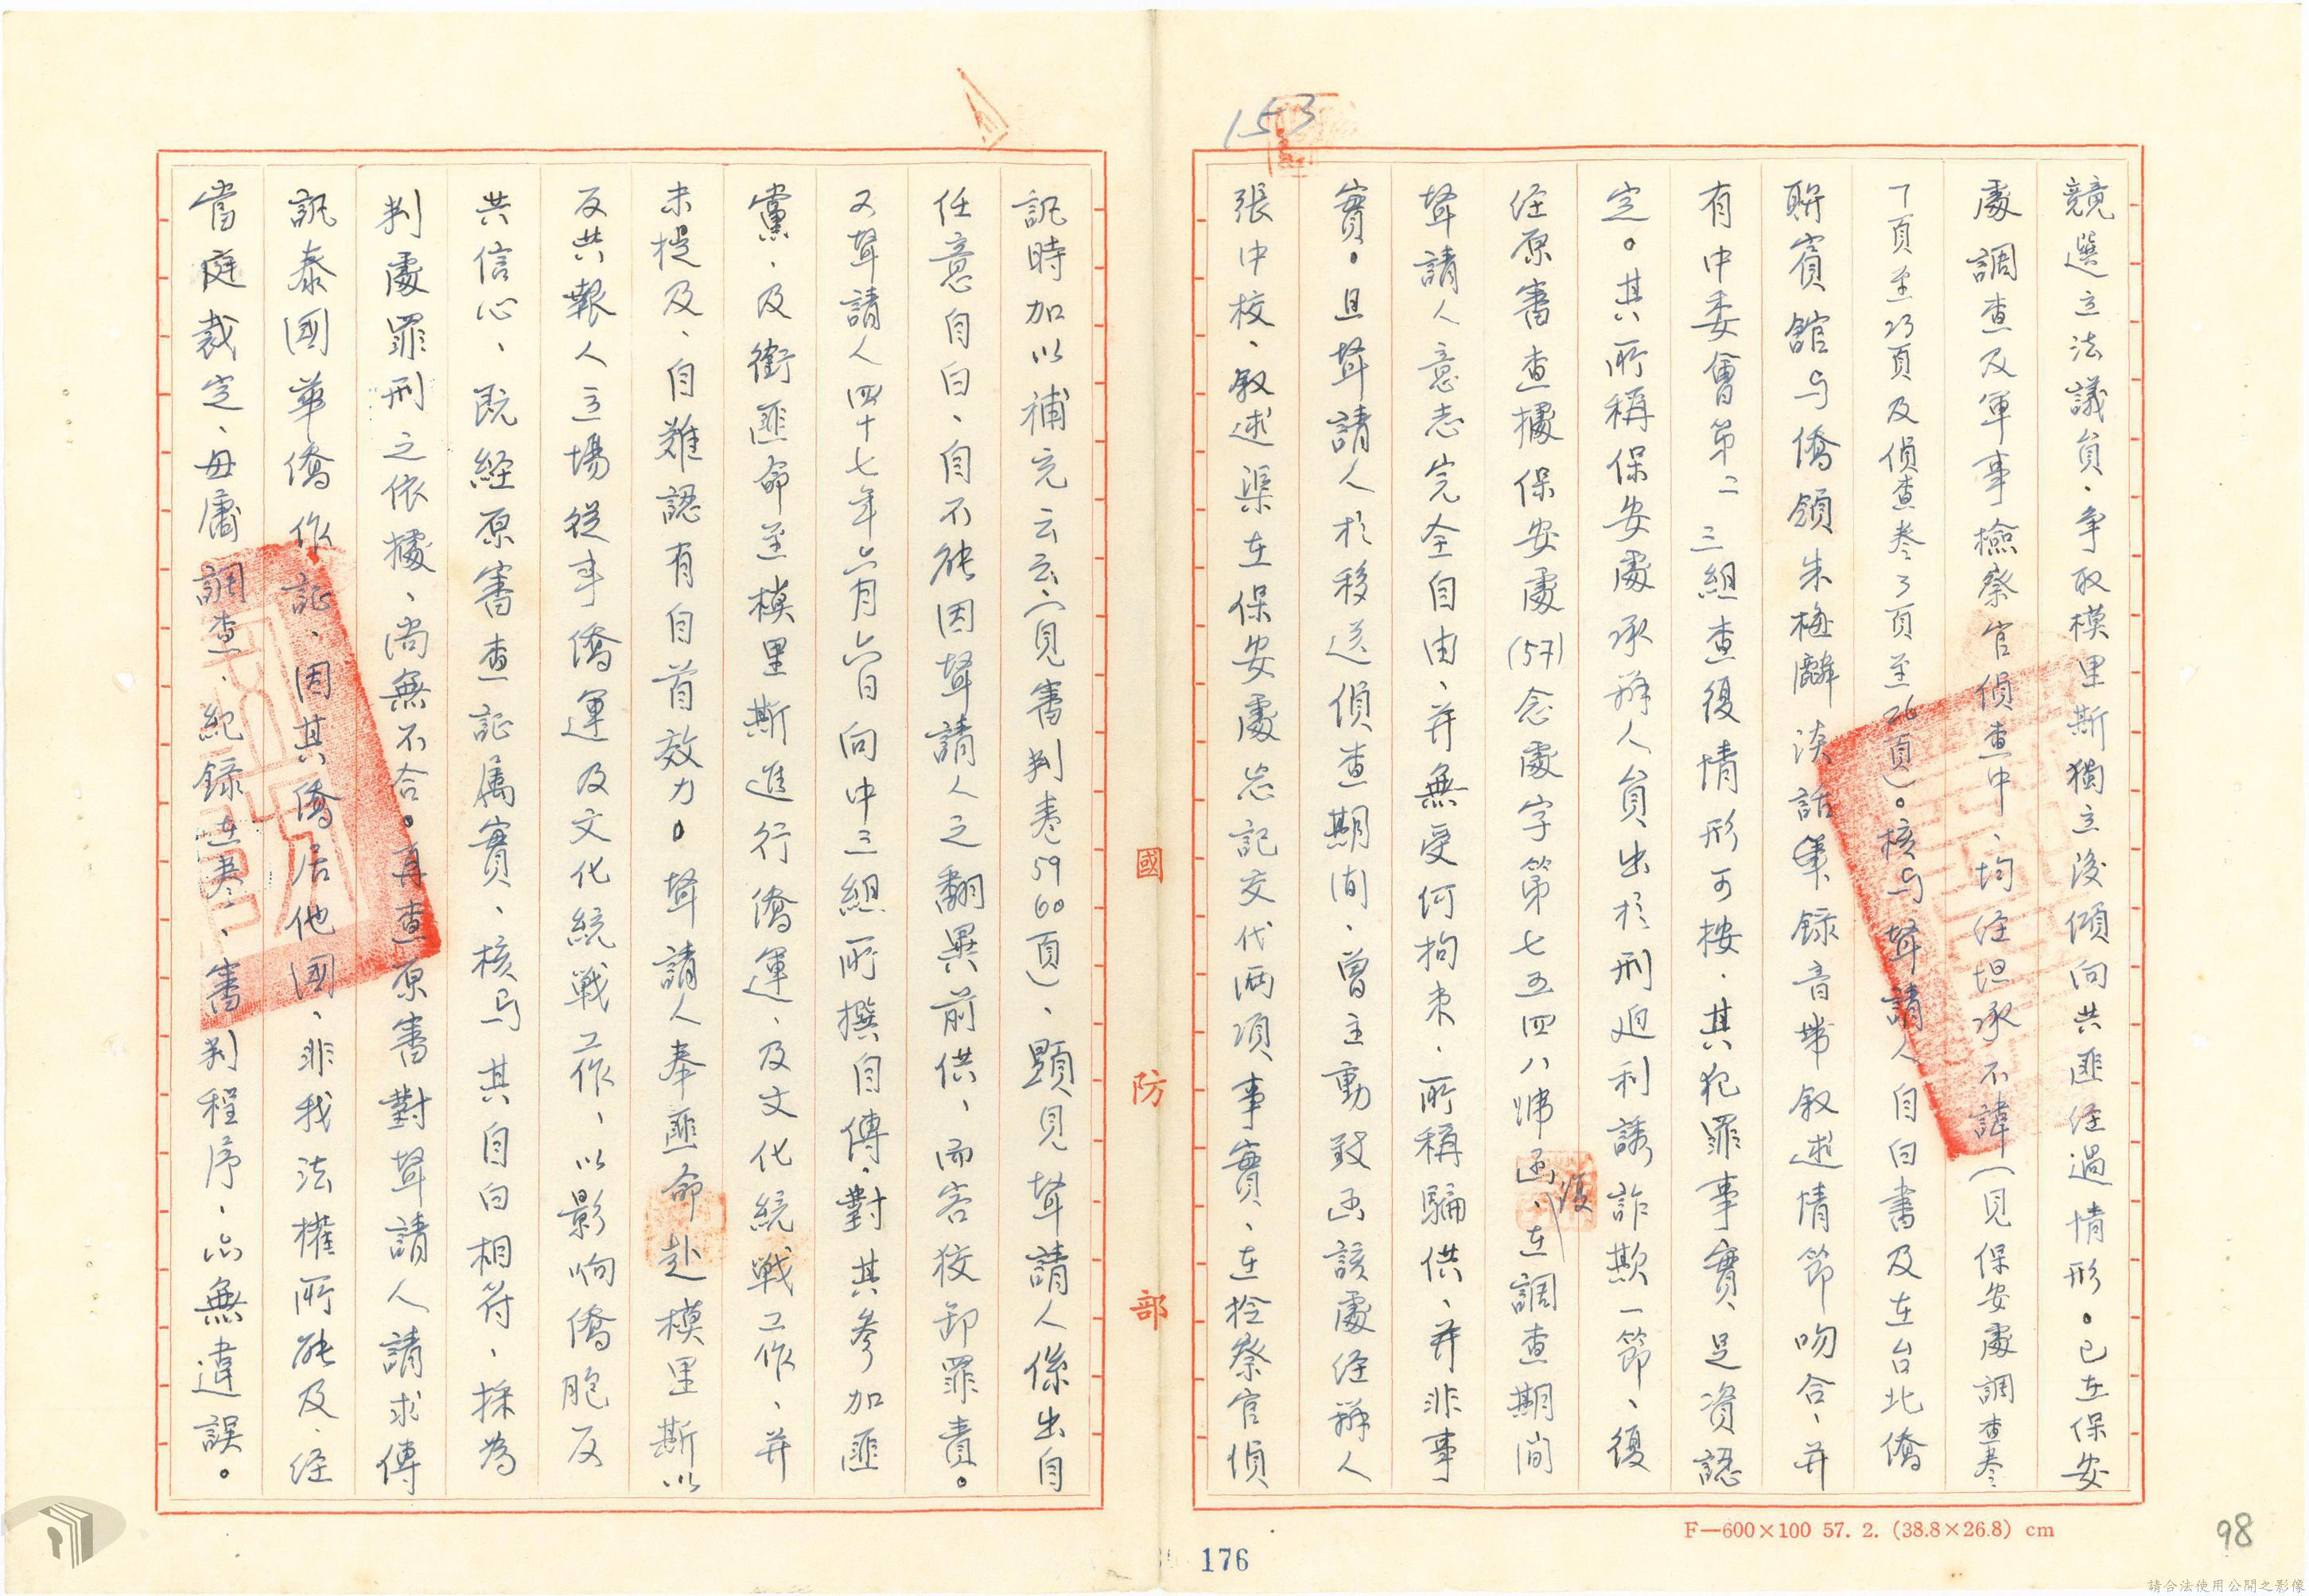 153
競選立法議員、争取模里斯獨立後傾向共匪経過情形。已在保安
處調查及軍事檢察官偵查中、均经坦承不諱（見保安處調查卷
7頁至23頁及偵查卷3頁至26頁）。核与聲請人自白書及在台北僑
聯賓館与僑領朱梅麟談話筆録音帶叙述情節吻合、并
有中委會第二三組查復情形可按、其犯罪事實足資認
定。其所稱保安處承辦人員出於刑廹利誘詐欺一節、復
经原審查據保安處(57)念處字第七五四八號函復、在調查期間
聲請人意志完全自由、并無受何拘束、所稱騙供、并非事
實。且聲請人於移送偵查期间、曾主動致函該處经辦人
張中校、叙述渠在保安處忘記交代两項事實、在检察官偵
國防部
訊時加以補充云云、（見審判卷59 60頁）、顕見聲請人係出自
任意自白、自不能因聲請人之翻異前供、而容狡卸罪責。
又聲請人四十七年六月六日向中三組所撰自傳、對其参加匪
黨、及銜匪命至模里斯進行僑運、及文化統戰工作、并
未提及、自難認有自首效力。聲請人奉匪命赴模里斯以
反共報人立場從事僑運及文化統戰工作、以影响僑胞反
共信心、既経原審查証属實、核与其自白相符、採為
判處罪刑之依據、尚無不合。再查原審對聲請人請求傳
訊泰國華僑作証、因其僑居他國、非我法權所能及、经
當庭裁定、毋庸調查、紀録在卷、審判程序、亦無違誤。
F—600×100 57. 2. (38.8×26.8) cm
176
98
請合法使用公開之影像